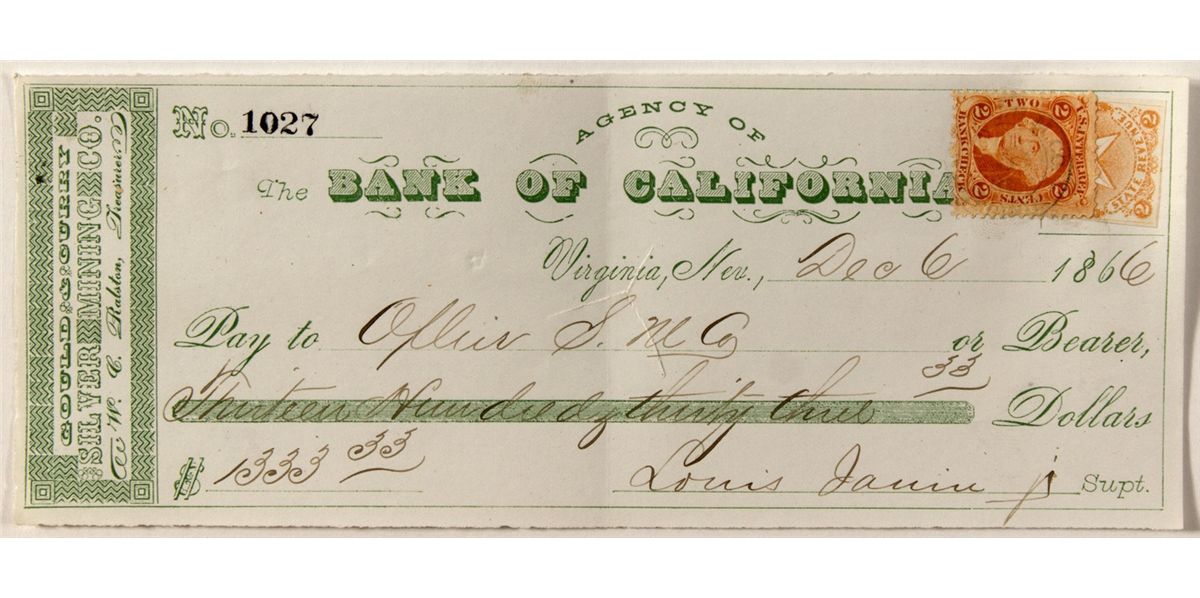 GOULD & CURRY
SILVER MINING CO.
W. C. Ralston, Treasurer
No. 1027
AGENCY OF
The BANK OF CALIFORNIA
TWO
2 2
U.S. INTER. REV.
BANK CHECK
CENTS
2 2
2
STATE REV
REVENUE
2
Virginia, Nev., Dec 6 1866
Pay to Ophir S. M Co or Bearer,
33
Thirteen Hundred & thirty three Dollars
$ 1333 33
Louis Janin jr Supt.